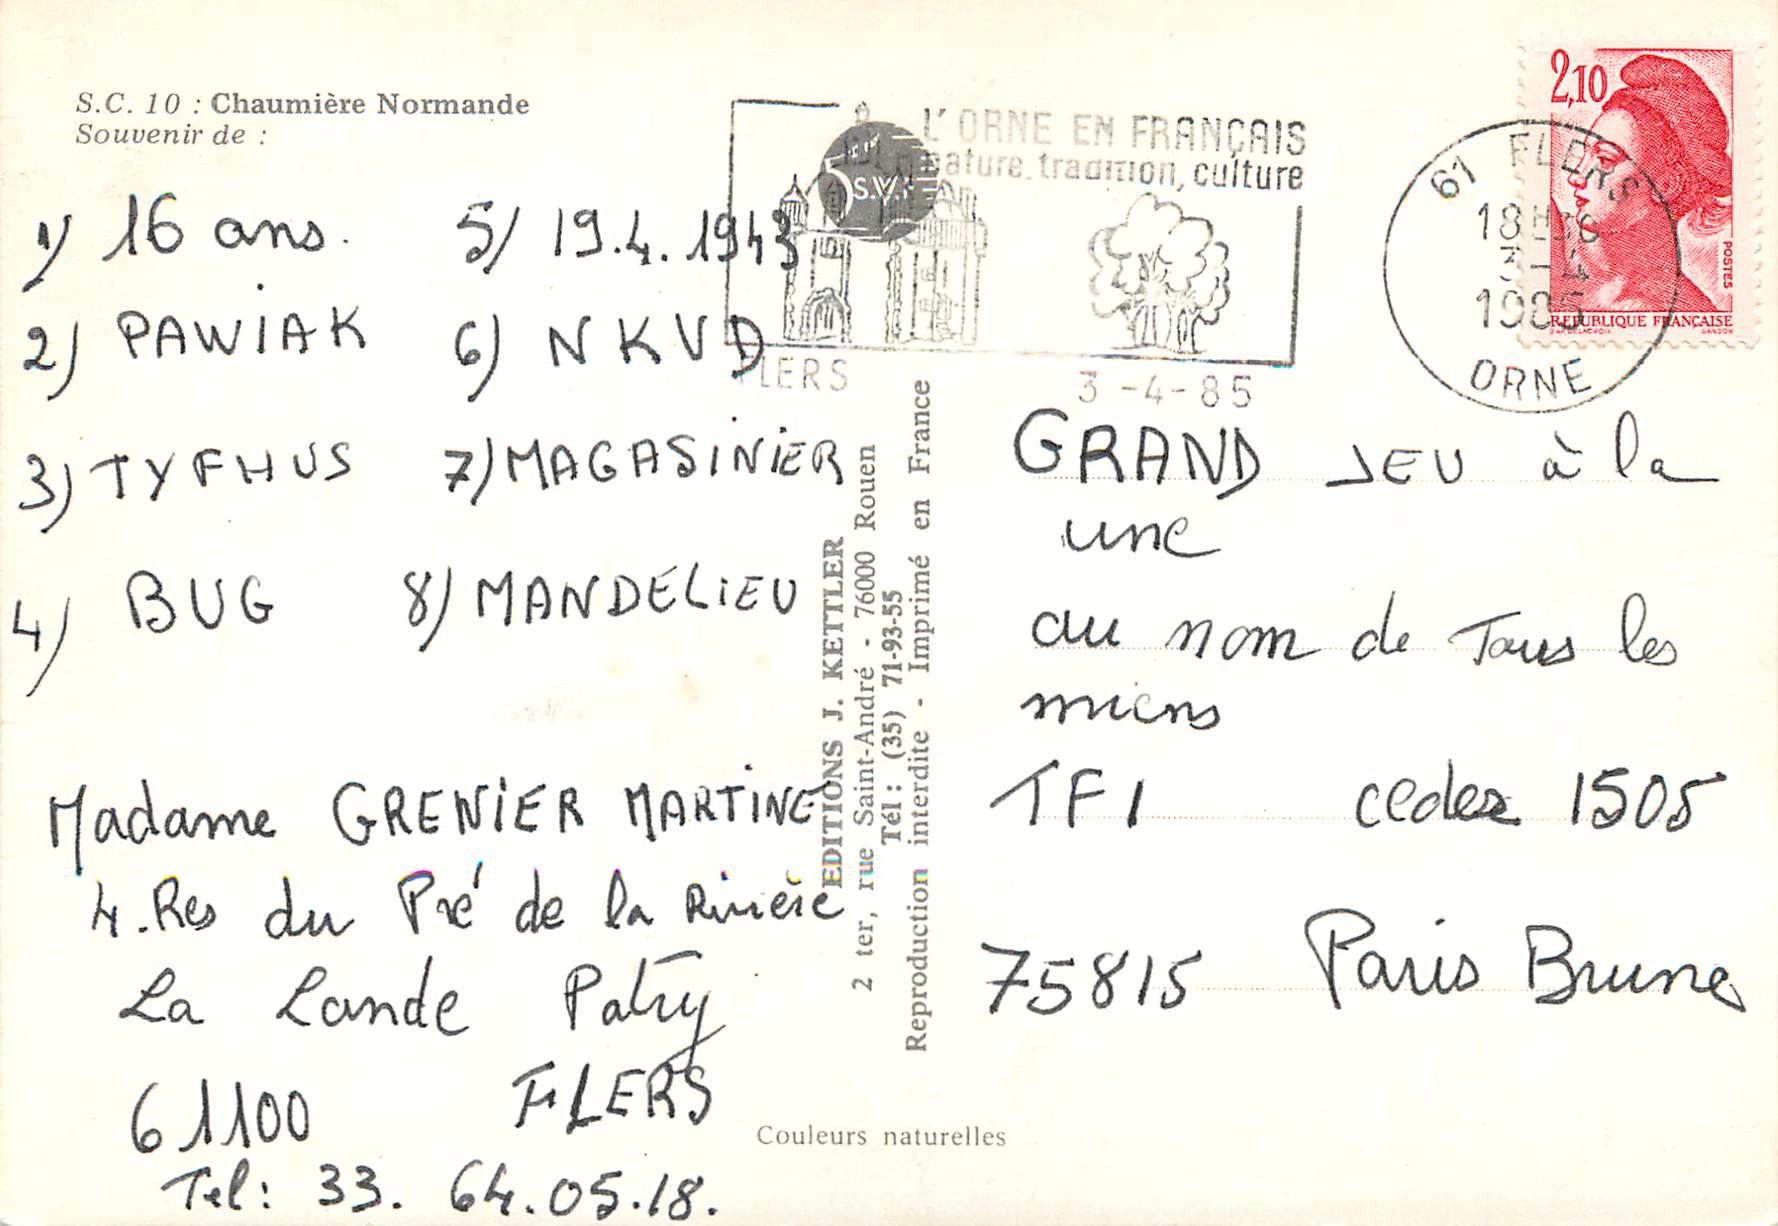 S.C. 10 : Chaumière Normande
Souvenir de :
1/ 16 ans.
2) PAWIAK
3) TYFHUS
4) BUG
5/ 19.4.1943
6) NKVD
7) MAGASINIER
8) MANDELIEU
Madame GRENIER MARTINE
4. Res du Pré de la Rivière
La Lande Patry
61100 FLERS
Tel: 33. 64.05.18.
EDITIONS J. KETTLER
2 ter, rue Saint-André - 76000 Rouen
Tél : (35) 71-93-55
Reproduction interdite - Imprimé en France
Couleurs naturelles
L'ORNE EN FRANÇAIS
nature, tradition, culture
S.V.P.
FLERS 3-4-85
61 FLERS
18H
3-4
1985
ORNE
2,10
POSTES
REPUBLIQUE FRANÇAISE
D'AP. DELACROIX GANDON
GRAND JEU à la
une
au nom de Tous les
miens
TF1 cedex 1505
75815 Paris Brune